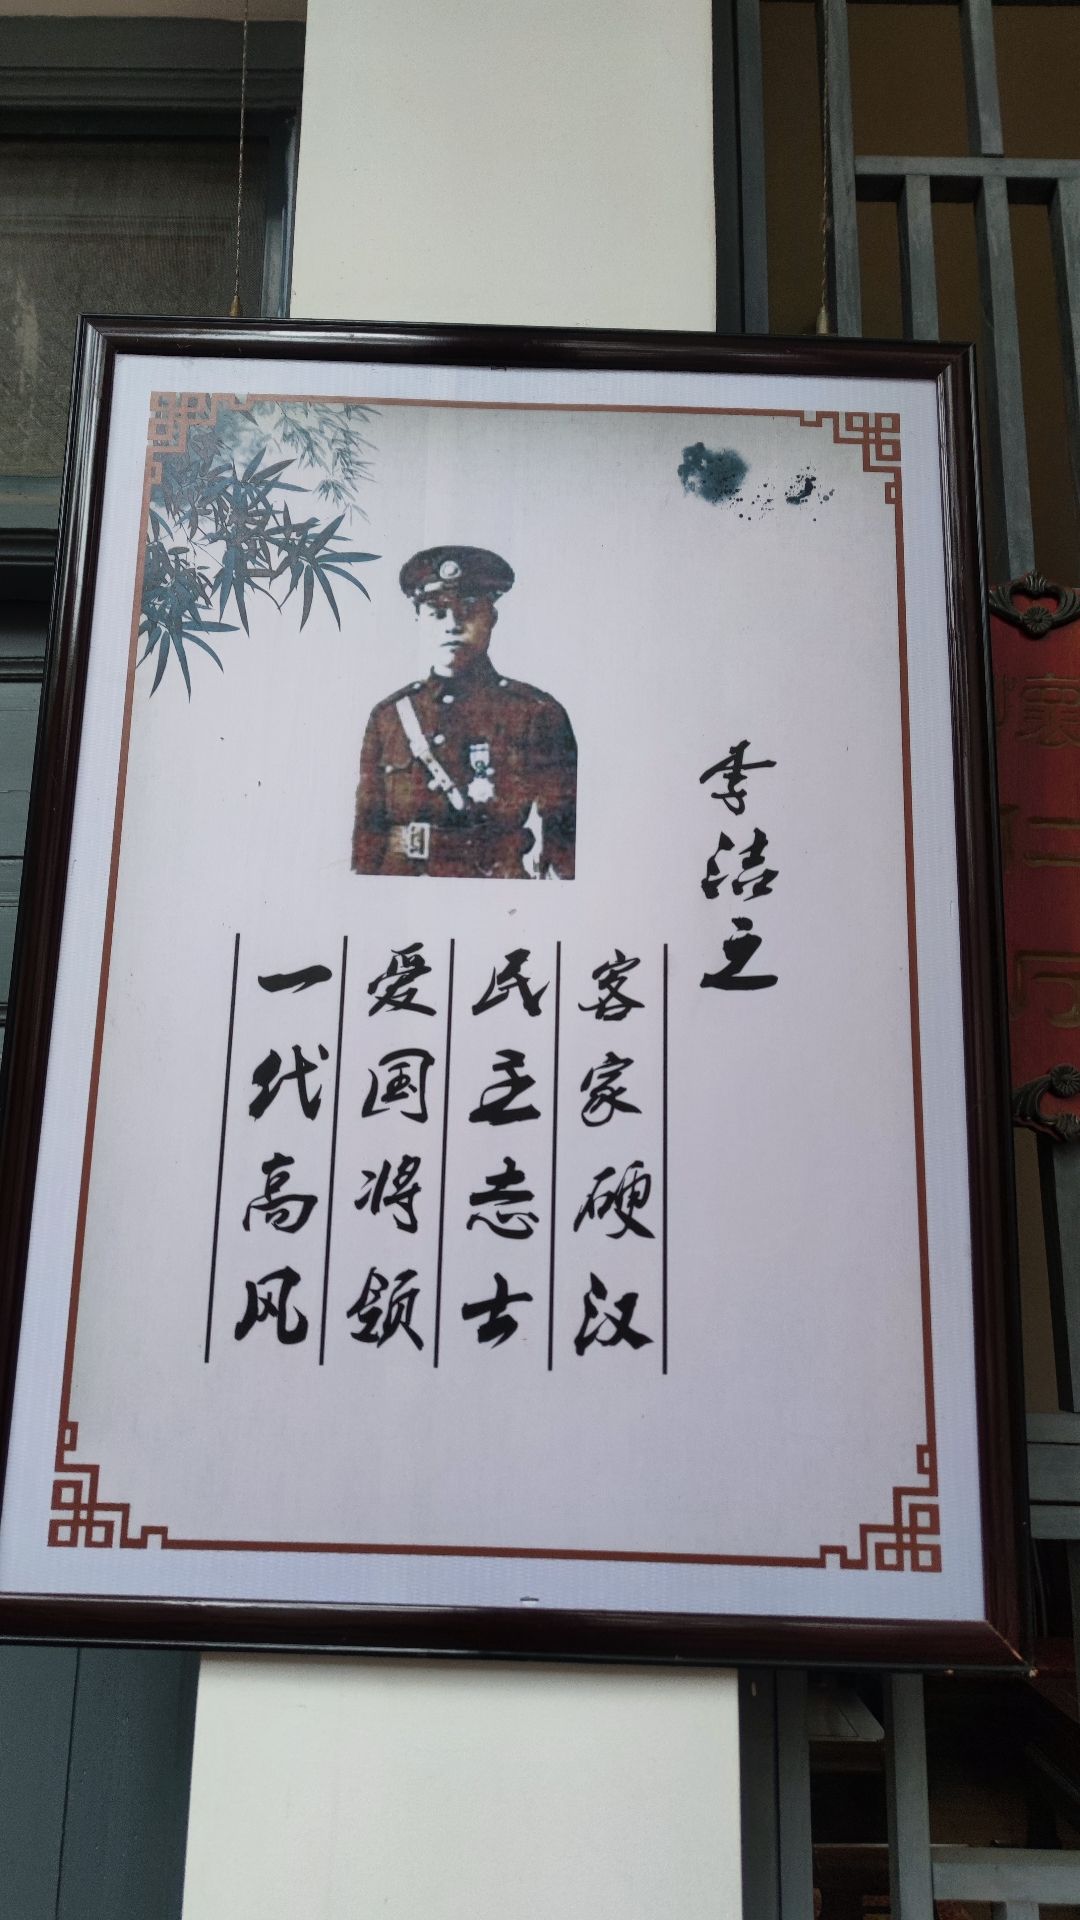 李洁之
客家硬汉
民主志士
爱国将领
一代高风